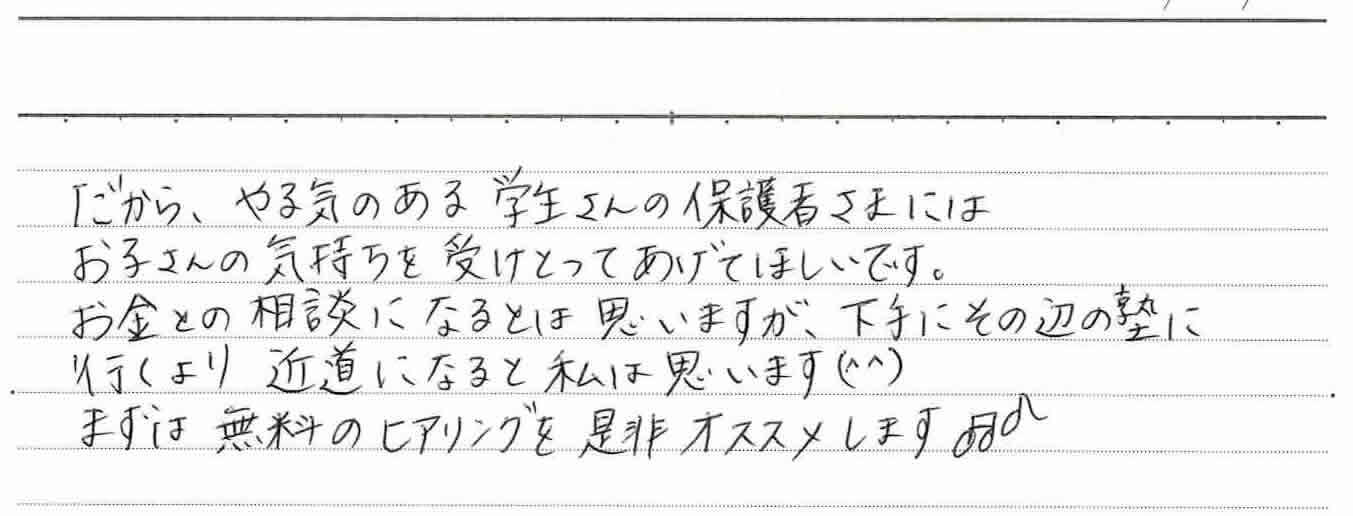 だから、やる気のある学生さんの保護者さまには
お子さんの気持ちを受けとってあげてほしいです。
お金との相談になるとは思いますが、下手にその辺の塾に
行くより近道になると私は思います(^^)
まずは無料のヒアリングを是非オススメします♫♪